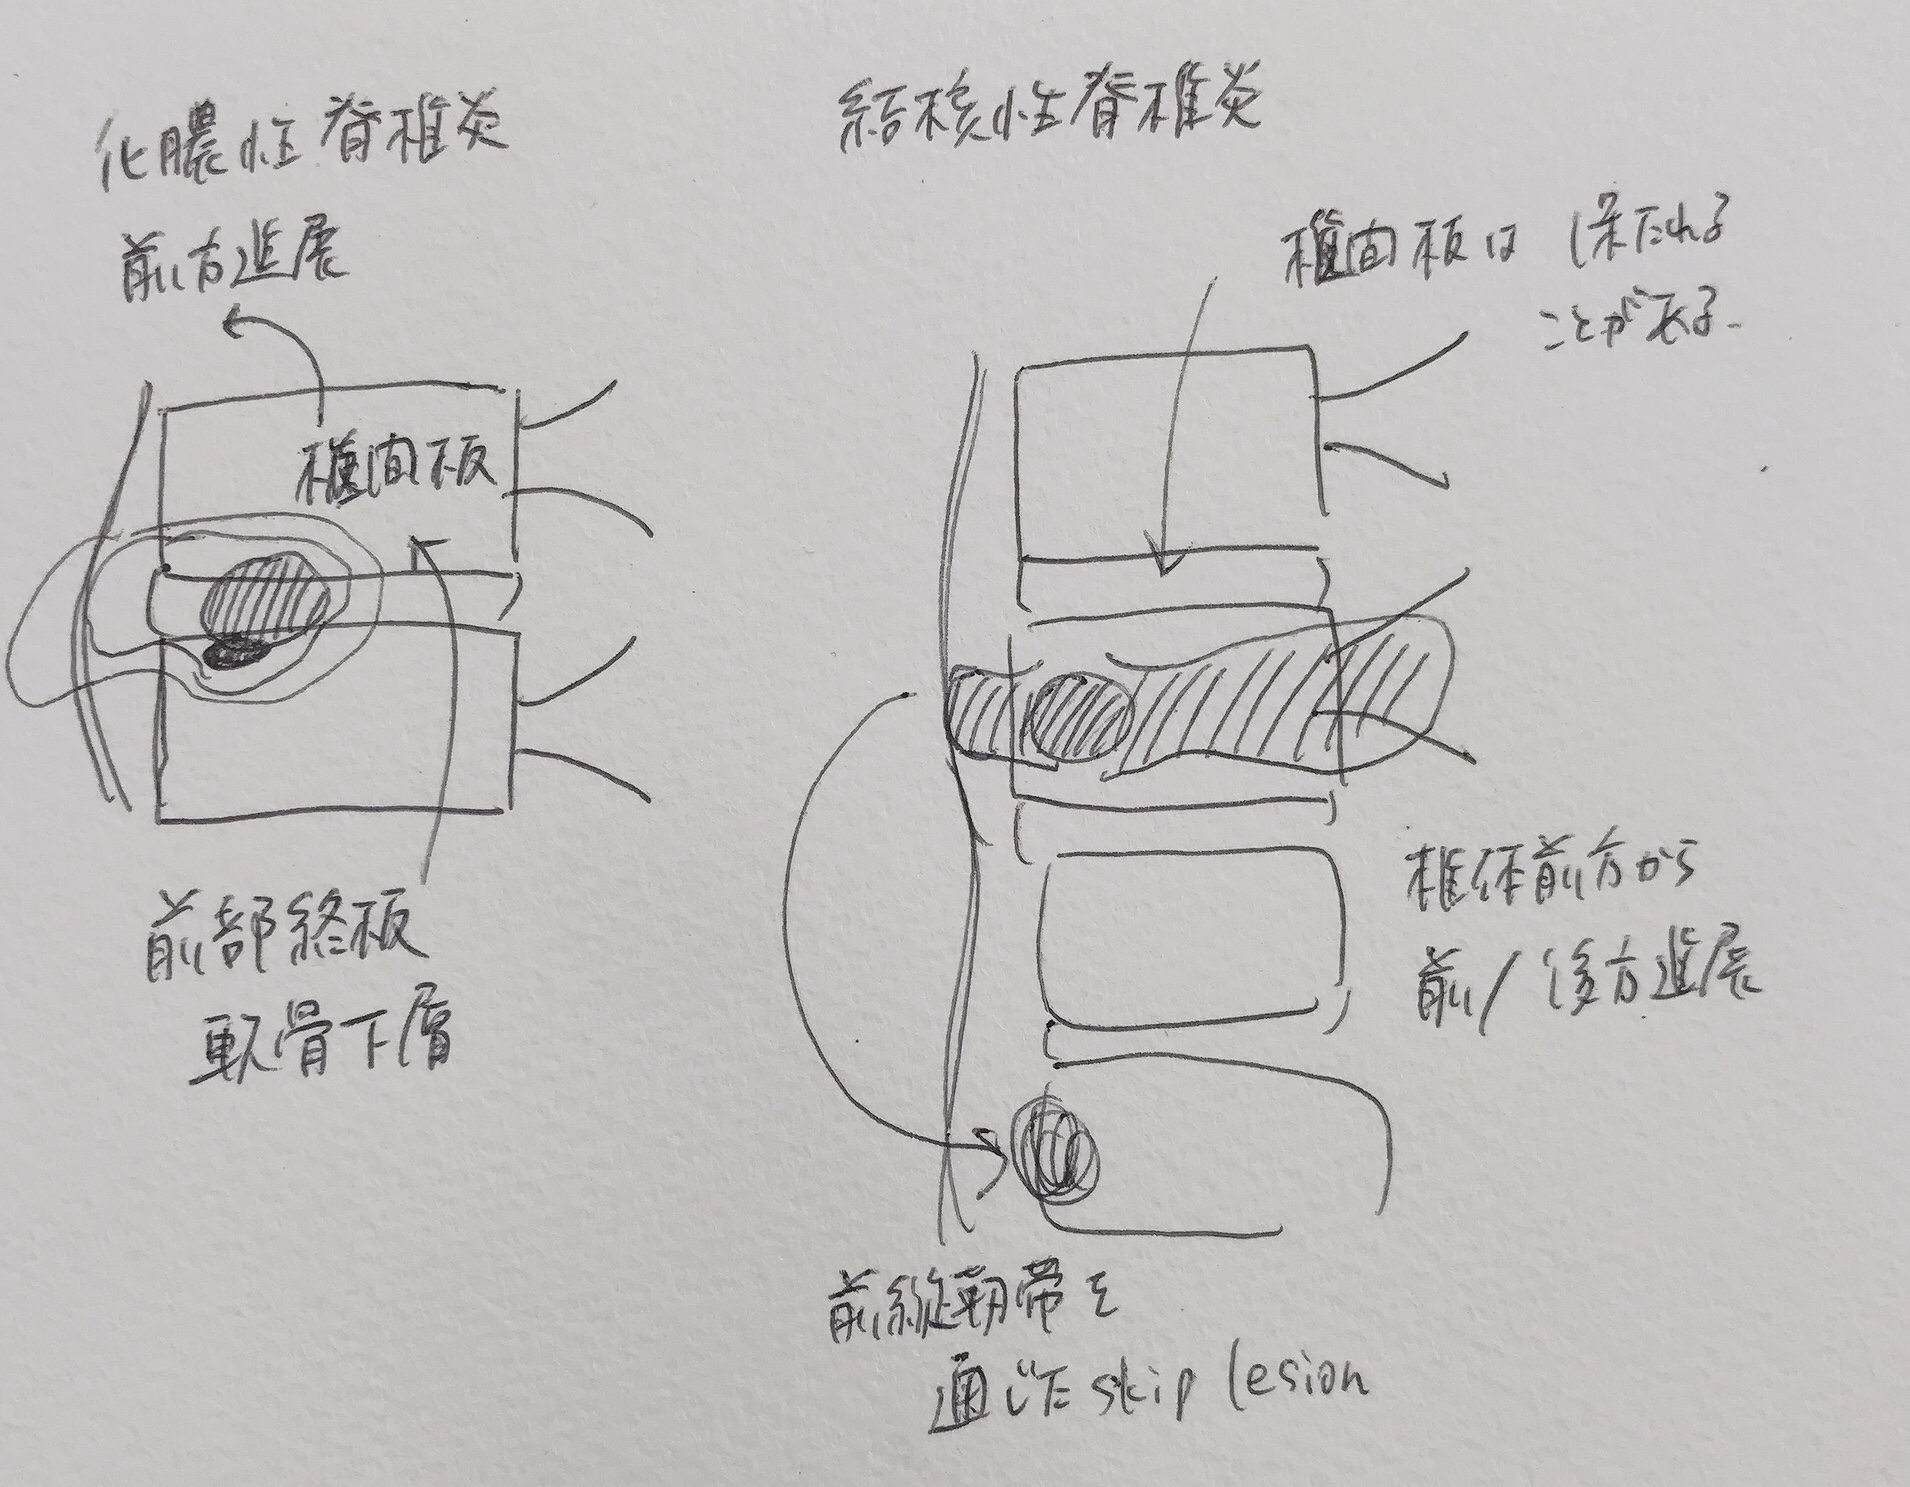 化膿性脊椎炎
前方進展
椎間板
前部終板
軟骨下層
結核性脊椎炎
椎間板は保たれる
ことが式る.
椎体前方から
前/後方進展
前縦靭帯を
通じた skip lesion